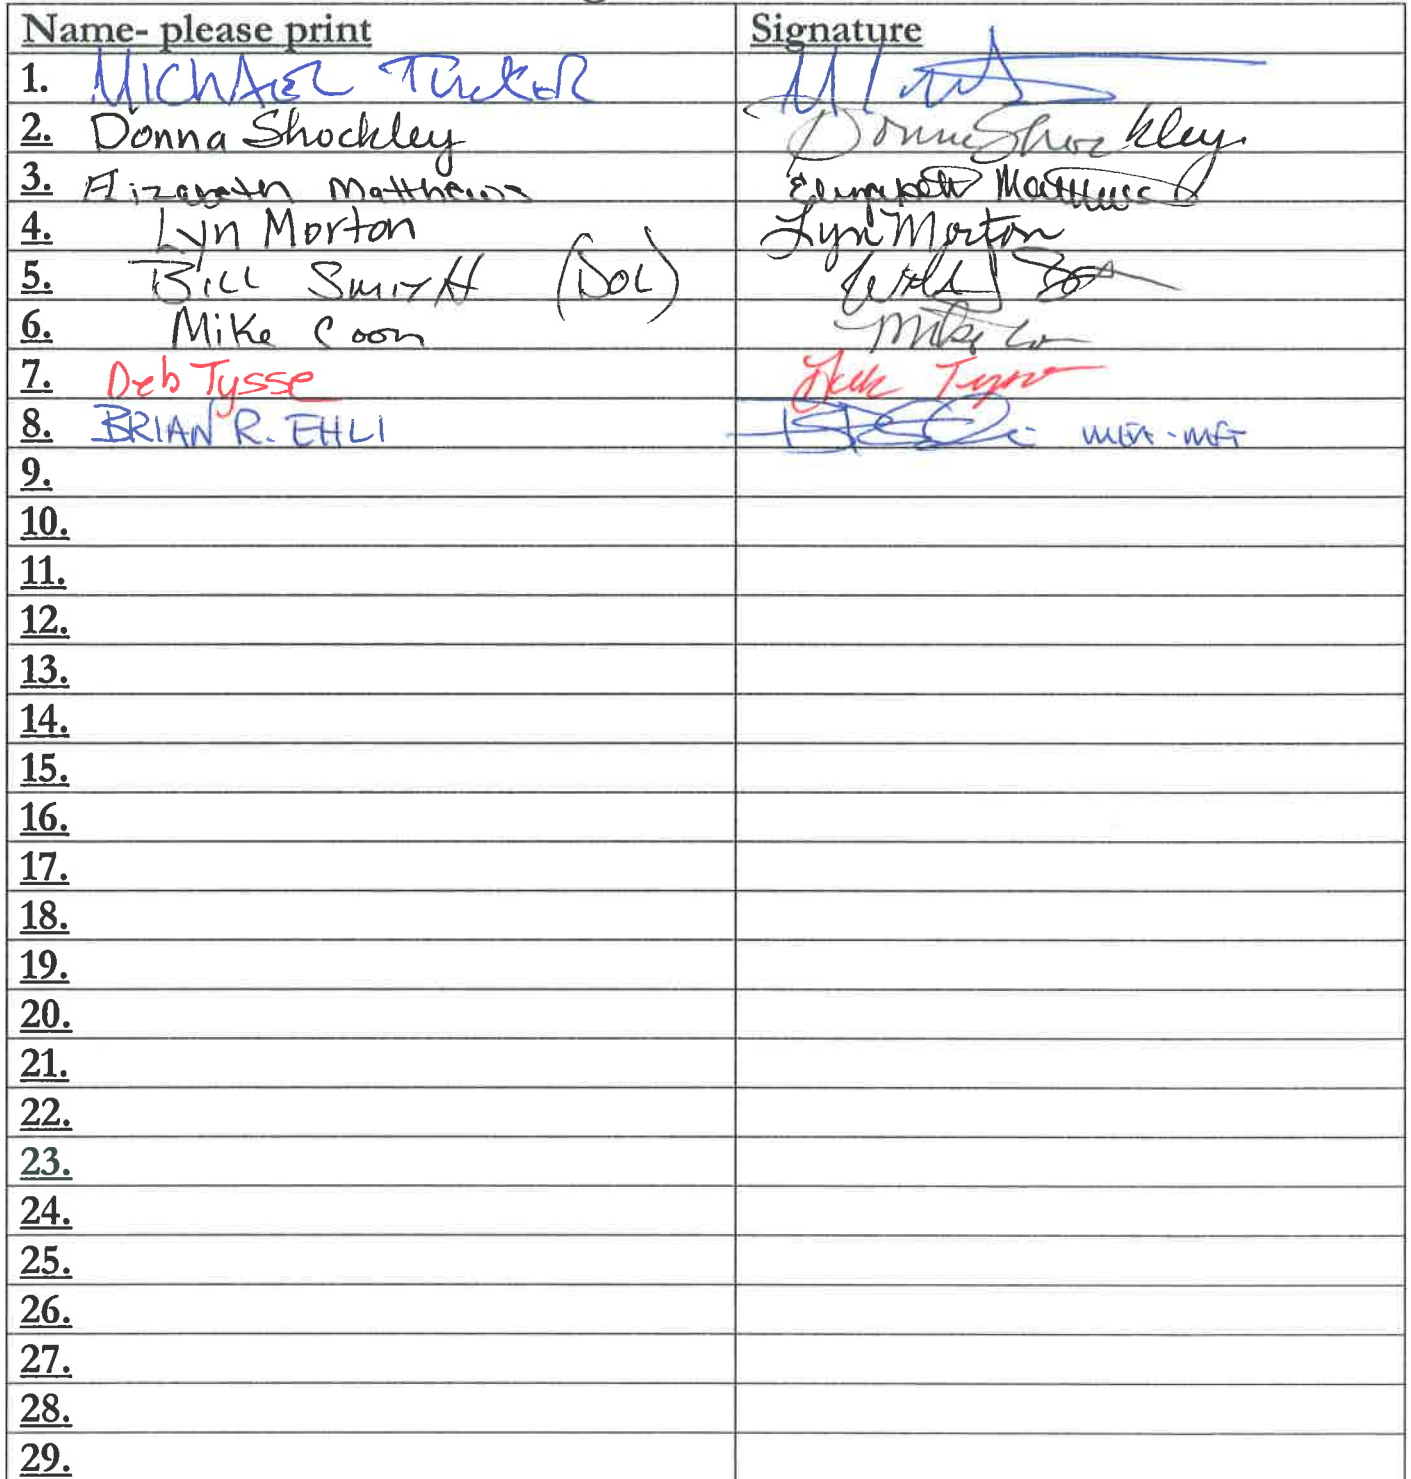 Name- please print Signature
1. MICHAEL TUCKER
2. Donna Shockley Donna Shockley
3. Elizabeth Matthews Elizabeth Matthews
4. Lyn Morton Lyn Morton
5. Bill Smith (DOL)
6. Mike Coon Mike
7. Deb Tysse
8. BRIAN R. EHLI MEA-MFT
9.
10.
11.
12.
13.
14.
15.
16.
17.
18.
19.
20.
21.
22.
23.
24.
25.
26.
27.
28.
29.